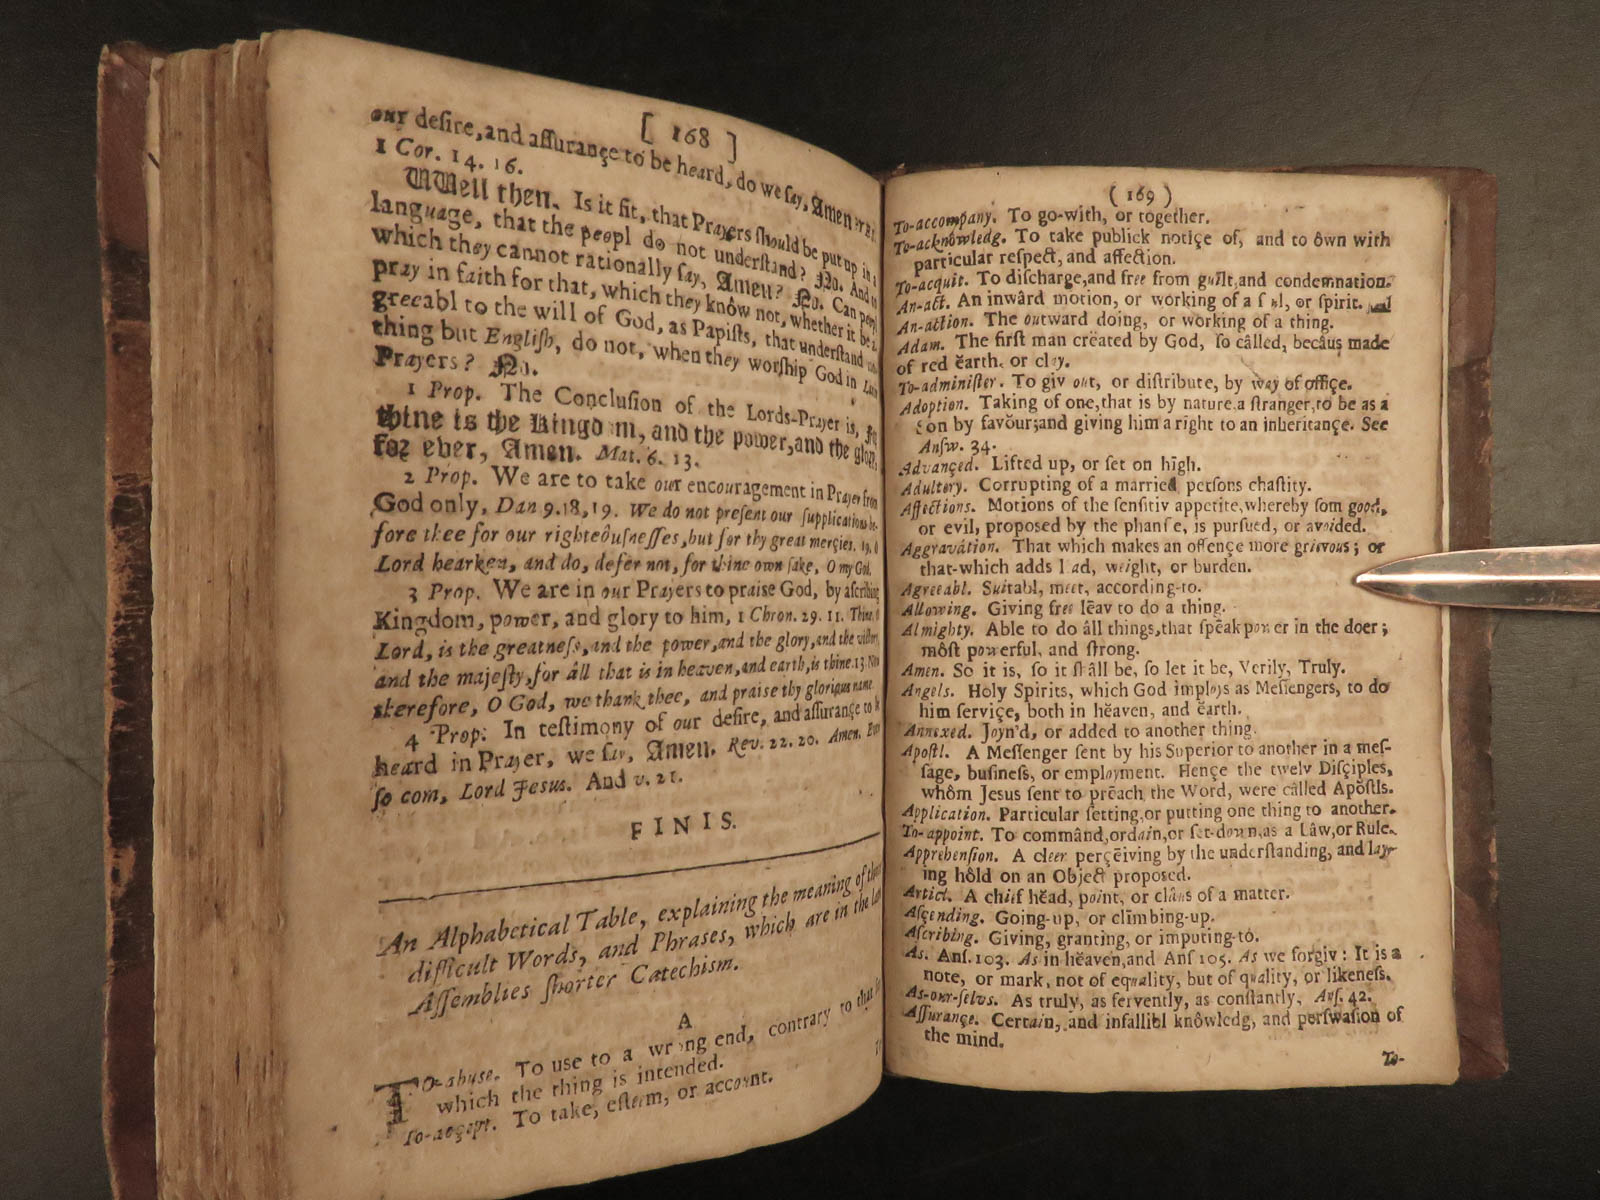 [ 168 ]
our deſire, and aſſurançe to be heard, do we ſay, Amen
1 Cor. 14. 16.
Well then. Is it fit, that Prayers ſhould be put up in a
language, that the peopl do not underſtand? No. And
which they cannot rationally ſay, Amen? No. Can
pray in faith for that, which they knôw not, whether it be
greeabl to the will of God, as Papiſts, that underſtand
thing but Engliſh, do not, when they worſhip God in
Prayers? No.
1 Prop. The Concluſion of the Lords-Prayer is,
thine is the Kingdom, and the power, and the glory,
for ever, Amen. Mat. 6. 13.
2 Prop. We are to take our encouragement in Prayer from
God only, Dan 9.18, 19. We do not preſent our ſupplications be-
fore thee for our righteôuſneſſes, but for thy great merçies. 19. O
Lord hearken, and do, defer not, for thine own ſake, O my God.
3 Prop. We are in our Prayers to praiſe God, by aſcribing
Kingdom, power, and glory to him, 1 Chron. 29. 11. Thine,
Lord, is the greatneſs, and the power, and the glory, and the
and the majeſty, for âll that is in heaven, and earth, is thine. 13.
therefore, O God, we thank thee, and praiſe thy glorious name.
4 Prop. In teſtimony of our deſire, and aſſurançe to
heard in Prayer, we ſay, Amen. Rev. 22. 20. Amen.
ſo com, Lord Jesus. And v. 21.
FINIS.
An Alphabetical Table, explaining the meaning of
difficult Words, and Phrases, which are in the
Aſſemblies ſhorter Catechism.
A
TO-abuse. To use to a wrong end, contrary to that
which the thing is intended.
To-acçept. To take, eſteem, or account.
( 169 )
To-accompany. To go-with, or together.
To-acknôwledg. To take publick notiçe of, and to ôwn with
particular reſpect, and affection.
To-acquit. To diſcharge, and free from guilt, and condemnation.
An-act. An inwârd motion, or working of a ſoul, or ſpirit.
An-action. The outward doing, or working of a thing.
Adam. The firſt man crëated by God, ſo câlled, becâuſ made
of red ĕarth, or clay.
To-adminiſter. To giv out, or diſtribute, by way of offiçe.
Adoption. Taking of one, that is by nature, a ſtranger, to be as a
Son by favŏur; and giving him a right to an inheritançe. See
Anſw. 34.
Advançed. Lifted up, or ſet on hīgh.
Adultery. Corrupting of a married perſons chaſtity.
Affections. Motions of the ſenſitiv appetite, whereby ſom good,
or evil, propoſed by the phanſe, is purſued, or avoided.
Aggravâtion. That which makes an offençe more grievous; or
that-which adds load, weight, or burden.
Agreeabl. Suitabl, meet, according-to.
Allowing. Giving free lēav to do a thing.
Almighty. Able to do âll things, that ſpēak power in the doer;
môſt powerful, and ſtrong.
Amen. So it is, ſo it ſhâll be, ſo let it be, Verily, Truly.
Angels. Holy Spirits, which God imploys as Meſſengers, to do
him ſerviçe, both in hĕaven, and ĕarth.
Annexed. Joyn'd, or added to another thing.
Apoſtl. A Meſſenger ſent by his Superior to another in a meſ-
ſage, buſineſs, or employment. Hençe the twelv Diſçiples,
whôm Jesus ſent to prēach the Word, were câlled Apôſtls.
Application. Particular ſetting, or putting one thing to another.
To-appoint. To commând, ordain, or ſet-down, as a Lâw, or Rule.
Apprehenſion. A cleer perçēiving by the underſtanding, and lay-
ing hôld on an Object propoſed.
Articl. A chief hĕad, point, or clâus of a matter.
Aſçending. Going-up, or clīmbing-up.
Aſcribing. Giving, granting, or imputing-to.
As. Anſ. 103. As in hĕaven, and Anſ 105. As we forgiv: It is a
note, or mark, not of equality, but of quality, or likeneſs.
As-our-ſelvs. As truly, as fervently, as conſtantly, Anſ. 42.
Aſſurançe. Certain, and infallibl knôwledg, and perſwaſion of
the mind.
To-